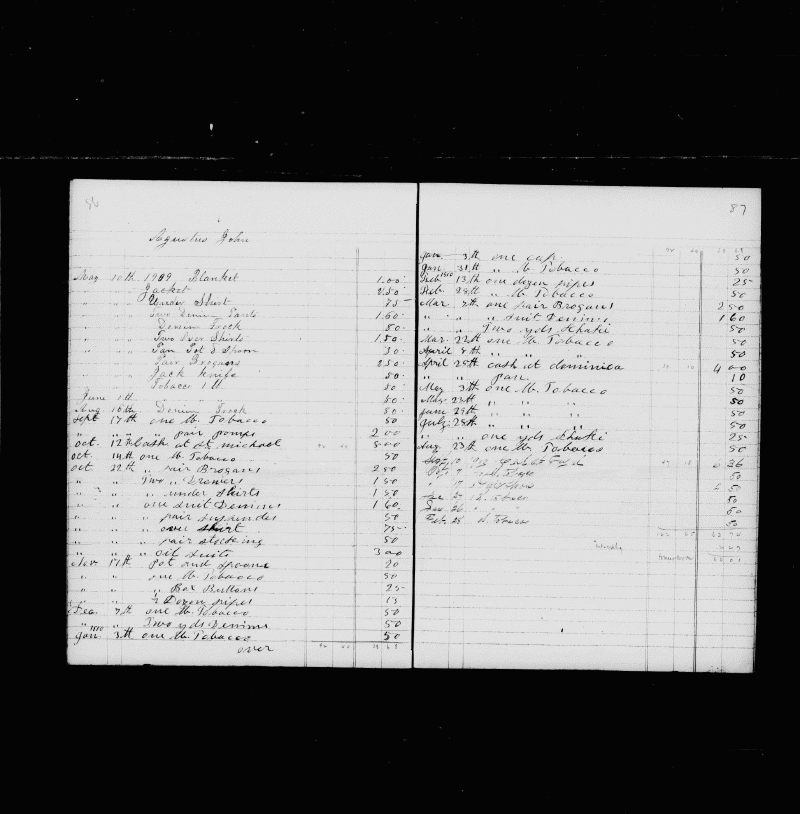 86
Agustus John
May 10th 1909 Blanket 1.00
" " " Jacket 2.50
" " " Under Shirt 75
" " " Two Denim Pants 1.60
" " " Denim Frock 80
" " " Two Over Shirts 1.50
" " " Pan Pot & Spoon 30
" " " Pair Brogans 2.50
" " " Jack Knife 50
" " " Tobacco 1 lb 50
June 1th " " " 50
Aug 16th Denim Frock 80
Sept 17th one lb. Tobacco 50
" " " pair pomps 2 00
oct. 12th Cash at st michael 5 00
oct. 14th one lb. Tobacco 50
oct 22th " Pair Brogans 2 50
" " Two " Drowers 1 50
" " " under Shirts 1 50
" " one Suit Denims 1 60
" " " pair suspendes 50
" " " over Shirt 75
" " " pair stocking 50
" " " oil suits 3 00
Nov 17th Pot and Spoane 20
" " one lb Tobacco 50
" " " Box Buttons 25
" " ½ Dozen pipes 13
Dec. 7th one lb. Tobacco 50
" " Two yds Denims 50
1910
Jan. 3th one lb. Tobacco 50
over
87
Jan. 3th one cap. 50
Jan 31th " lb Tobacco 50
Feb 1910 13th one dozen pipes 25
Feb 28th " lb Tobacco 50
Mar. 7th one pair Brogans 2 50
" " " Suit Denims 1 60
" " Two yds Khaki 50
Mar. 22th one lb. Tobacco 50
April 8th " " " 50
April 25th cash at dominica 4 00
" " pan. 10
May 3th one lb. Tobacco 50
May 23th " " " 50
June 29th " " " 50
July 25th " " " 50
" " one yds Khaki 25
Aug 23th one lb. Tobacco 50
36
50
50
50
Dec 26 " " " 50
Feb. 28 lb. Tobacco 50